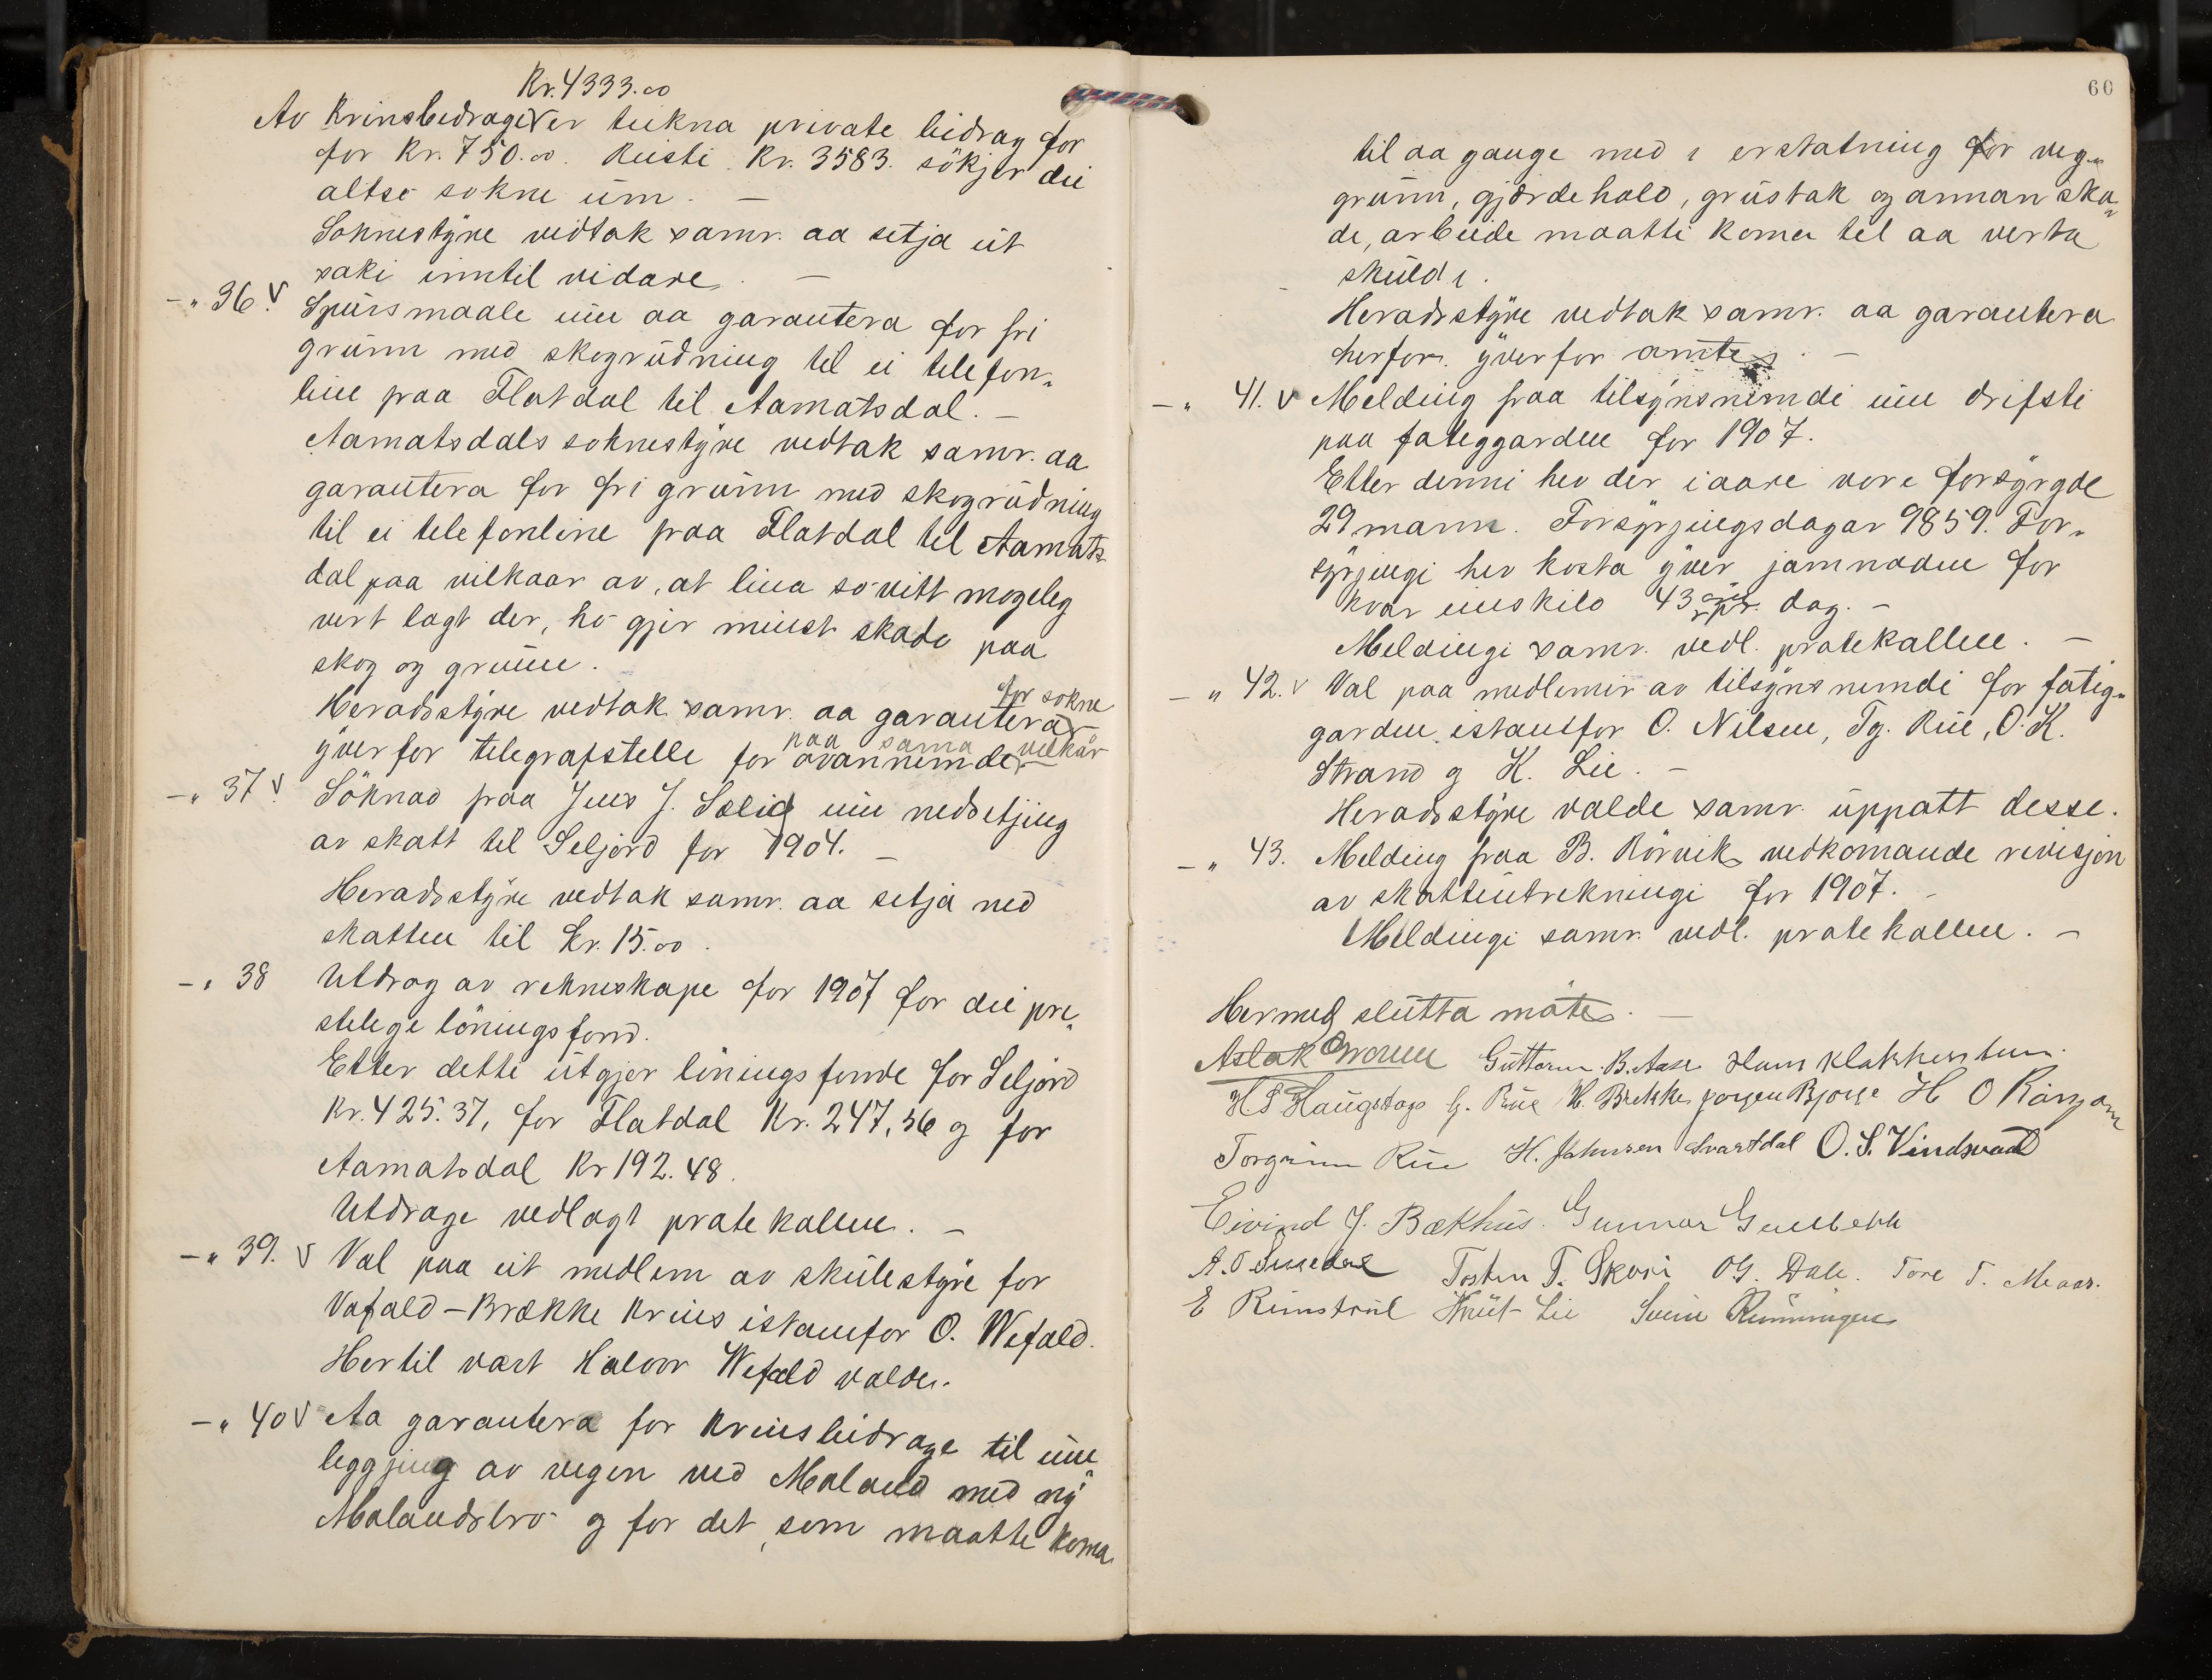 Kr. 4333.00
Av Krinsbedraget er teikna private bidrag for
for Kr. 750.00. Reisti Kr. 3583. sökjer dei
altso sokne um. —
Soknestyre vedtak samr. aa setja ut
saki inntil vidare. —
-„ 36. v Spursmaale um aa garantera for fri
grunn med skogrudning til ei telefon-
line fraa Flatdal til Aamotsdal. —
Aamotsdals soknestyre vedtak samr. aa
garantera for fri grunn med skogrudning
til ei telefonline fraa Flatdal til Aamots-
dal paa vilkaar av, at lina so vitt mogeleg
vert lagt der, ho gjer minst skade paa
skog og grunn.
for sokne
Heradsstyre vedtak samr. aa garantera
paa sama vilkår
yver for telegrafstelle for ovannemde —
-„ 37 v. Söknad fraa Jens J. Solid um nedsetjing
av skatt til Seljord for 1904. —
Heradsstyre vedtak samr. aa setja ned
skatten til Kr. 15.00.
-„ 38 Utdrag av rekneskape for 1907 for dei pre-
stelege löningsfond.
Etter dette utgjer löningsfonde for Seljord
Kr. 425.37, for Flatdal Kr. 247,56 og for
Aamotsdal Kr 192.48.
Utdrage vedlagt protekallen. —
-„ 39. v Val paa eit medlem av skulestyre for
Vefald-Brække Krins istanfor O. Wefald.
Hertil vart Halvor Wefald valde.
-„ 40 v Aa garantera for Krinsbidrage til um-
leggjing av vegen ved Moland med ny
Molandsbro og for det, som maatte koma
60
til aa gange med i erstatning for veg-
grunn, gjærdehald, grustak og annan ska-
de, arbeide maatte koma til aa verta
skuld i.
Heradsstyre vedtak samr. aa garantera
herfor yverfor amtet. —
-„ 41. v Melding fraa tilsynsnemdi um drifti
paa fatiggarden for 1907.
Etter denni hev der i aare vore forsyrgde
29 mann. Forsyrjingsdagar 9859. For-
syrjingi hev kosta yver jamnaden for
kvar einskild 43 øre pr. dag. —
Meldingi samr. vedl. protekallen. —
-„ 42. v Val paa medlemir av tilsynsnemdi for fatig-
garden istanfor O. Nilsen, Tg. Rue, O. K.
Strand og K. Lie. —
Heradsstyre valde samr. uppatt desse.
-„ 43. Melding fraa B. Rörvik vedkomande revisjon
av skatteutrekningi for 1907. —
Meldingi samr. vedl. protekallen. —
Hermed slutta möte. —
Aslak Guttorm B. Aase Hans Klakkentun.
H S Haugstog G. Rue H. Brekke Jorgen Bjorge H O
Torgrim Rue H. Johnsen Svartdal O. S. Vindsvaal
Eivind J. Bækhus. Gunnar
Tosten T. Skori OG. Dale. Tore T. Moar.
E Knut Lie Svein Rünningen